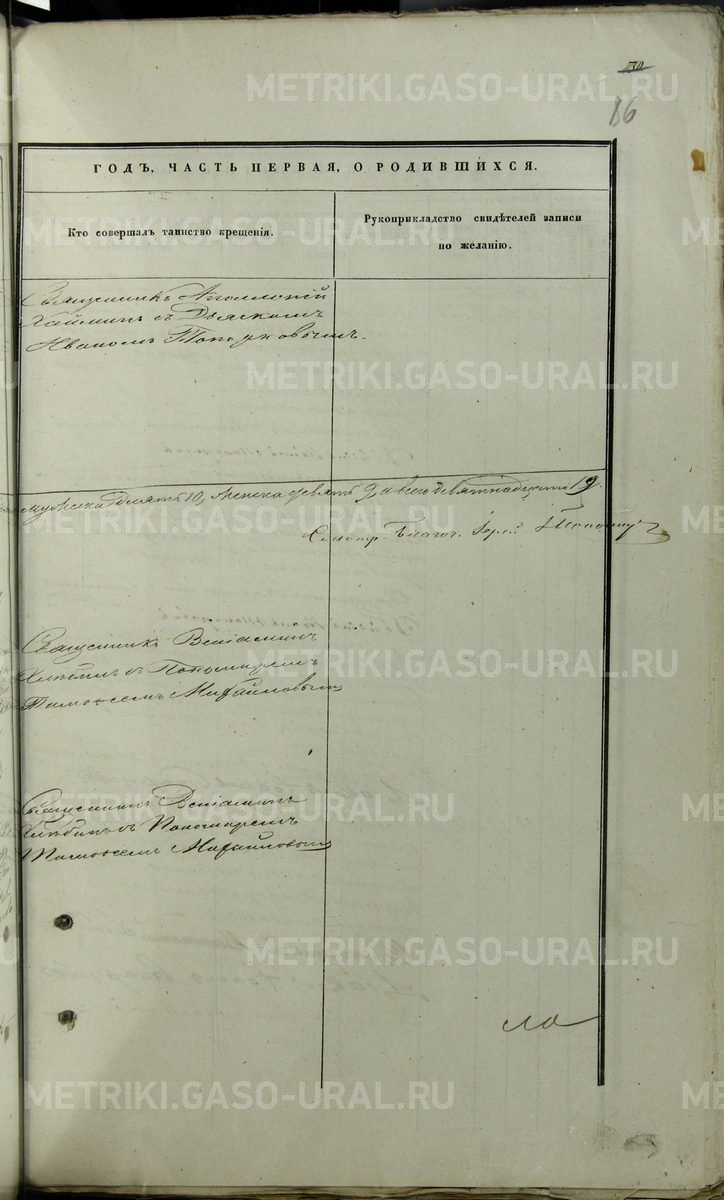 86
ГОДЪ, ЧАСТЬ ПЕРВАЯ, О РОДИВШИХСЯ.
Кто совершалъ таинство крещенія.
Рукоприкладство свидѣтелей записи
по желанію.
Священникъ Аполлоній
съ Дьякономъ
Иваномъ Топорковымъ.
мужеска десять 10, женска девять 9, а всего девятнадцать 19.
Благоч. Іерей
Священникъ Веніаминъ
Хлѣбинъ съ Пономаремъ
Тимофеемъ Михайловымъ
Священникъ Веніаминъ
Хлѣбинъ съ Пономаремъ
Тимофеемъ Михайловымъ
METRIKI.GASO-URAL.RU